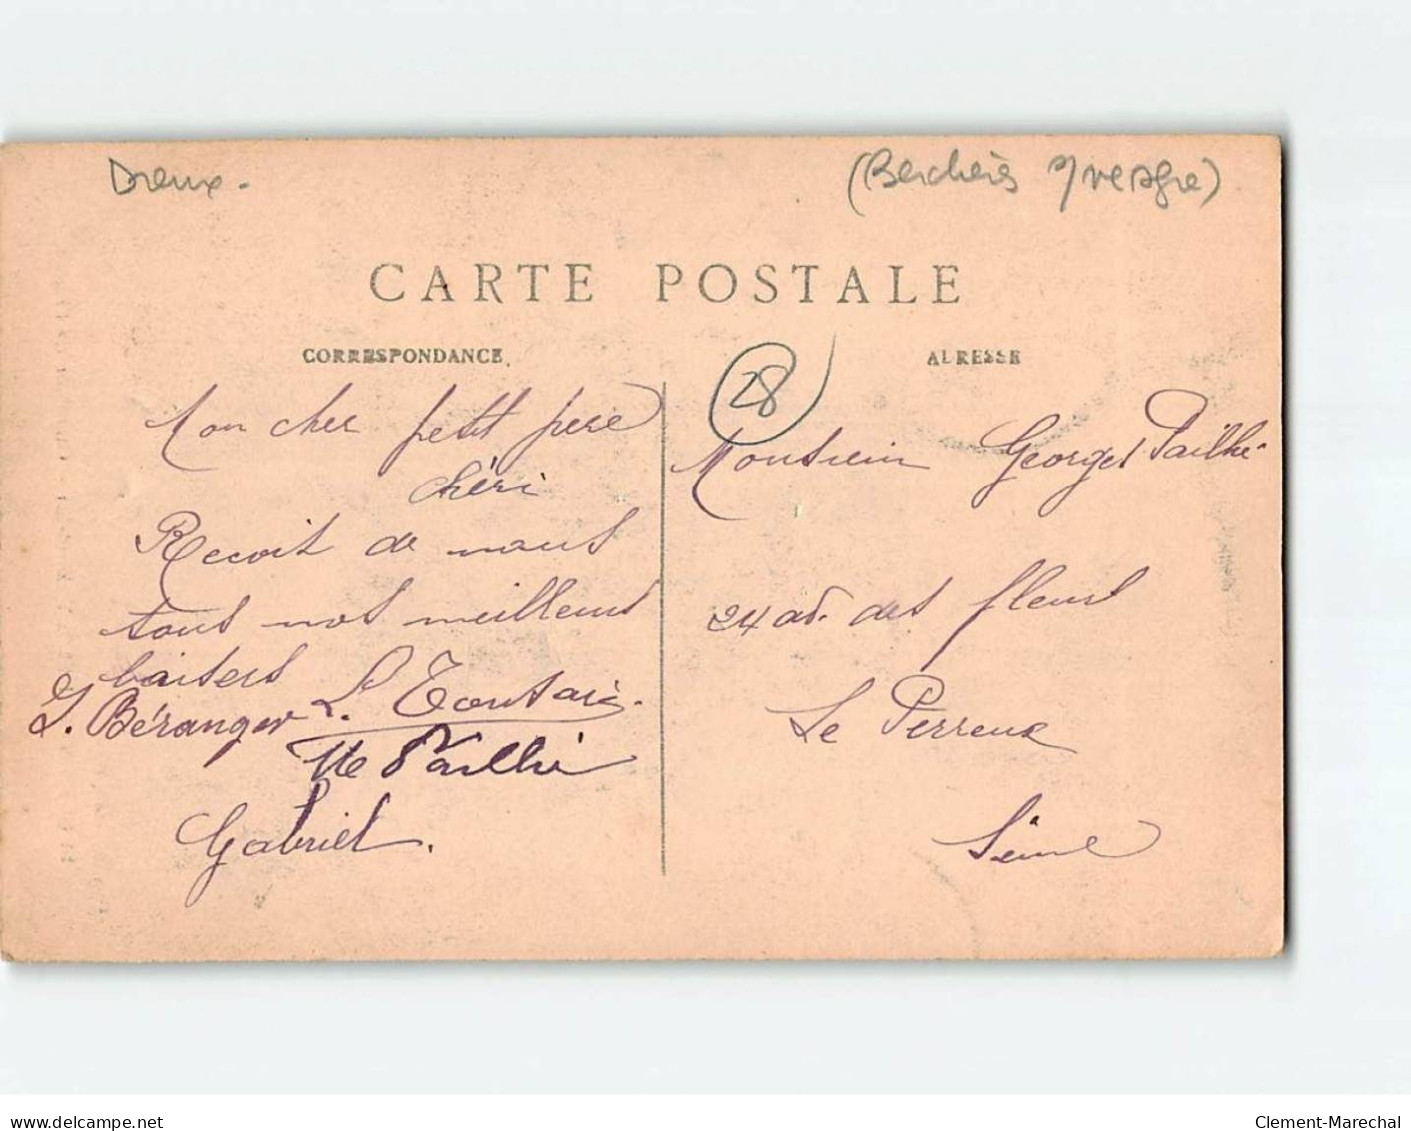 Dreux.
(Berchères s/ Vesgre)
CARTE POSTALE
CORRESPONDANCE
ADRESSE
28
Mon cher petit père
chéri
Recoit de nous
tous nos meilleurs
baisers
L. Toutain.
J. Béranger
Me Pailhé
Gabriel.
Monsieur Georges Pailhé
24 av. des fleurs
Le Perreux
Seine
delcampe.net
Clement-Marechal